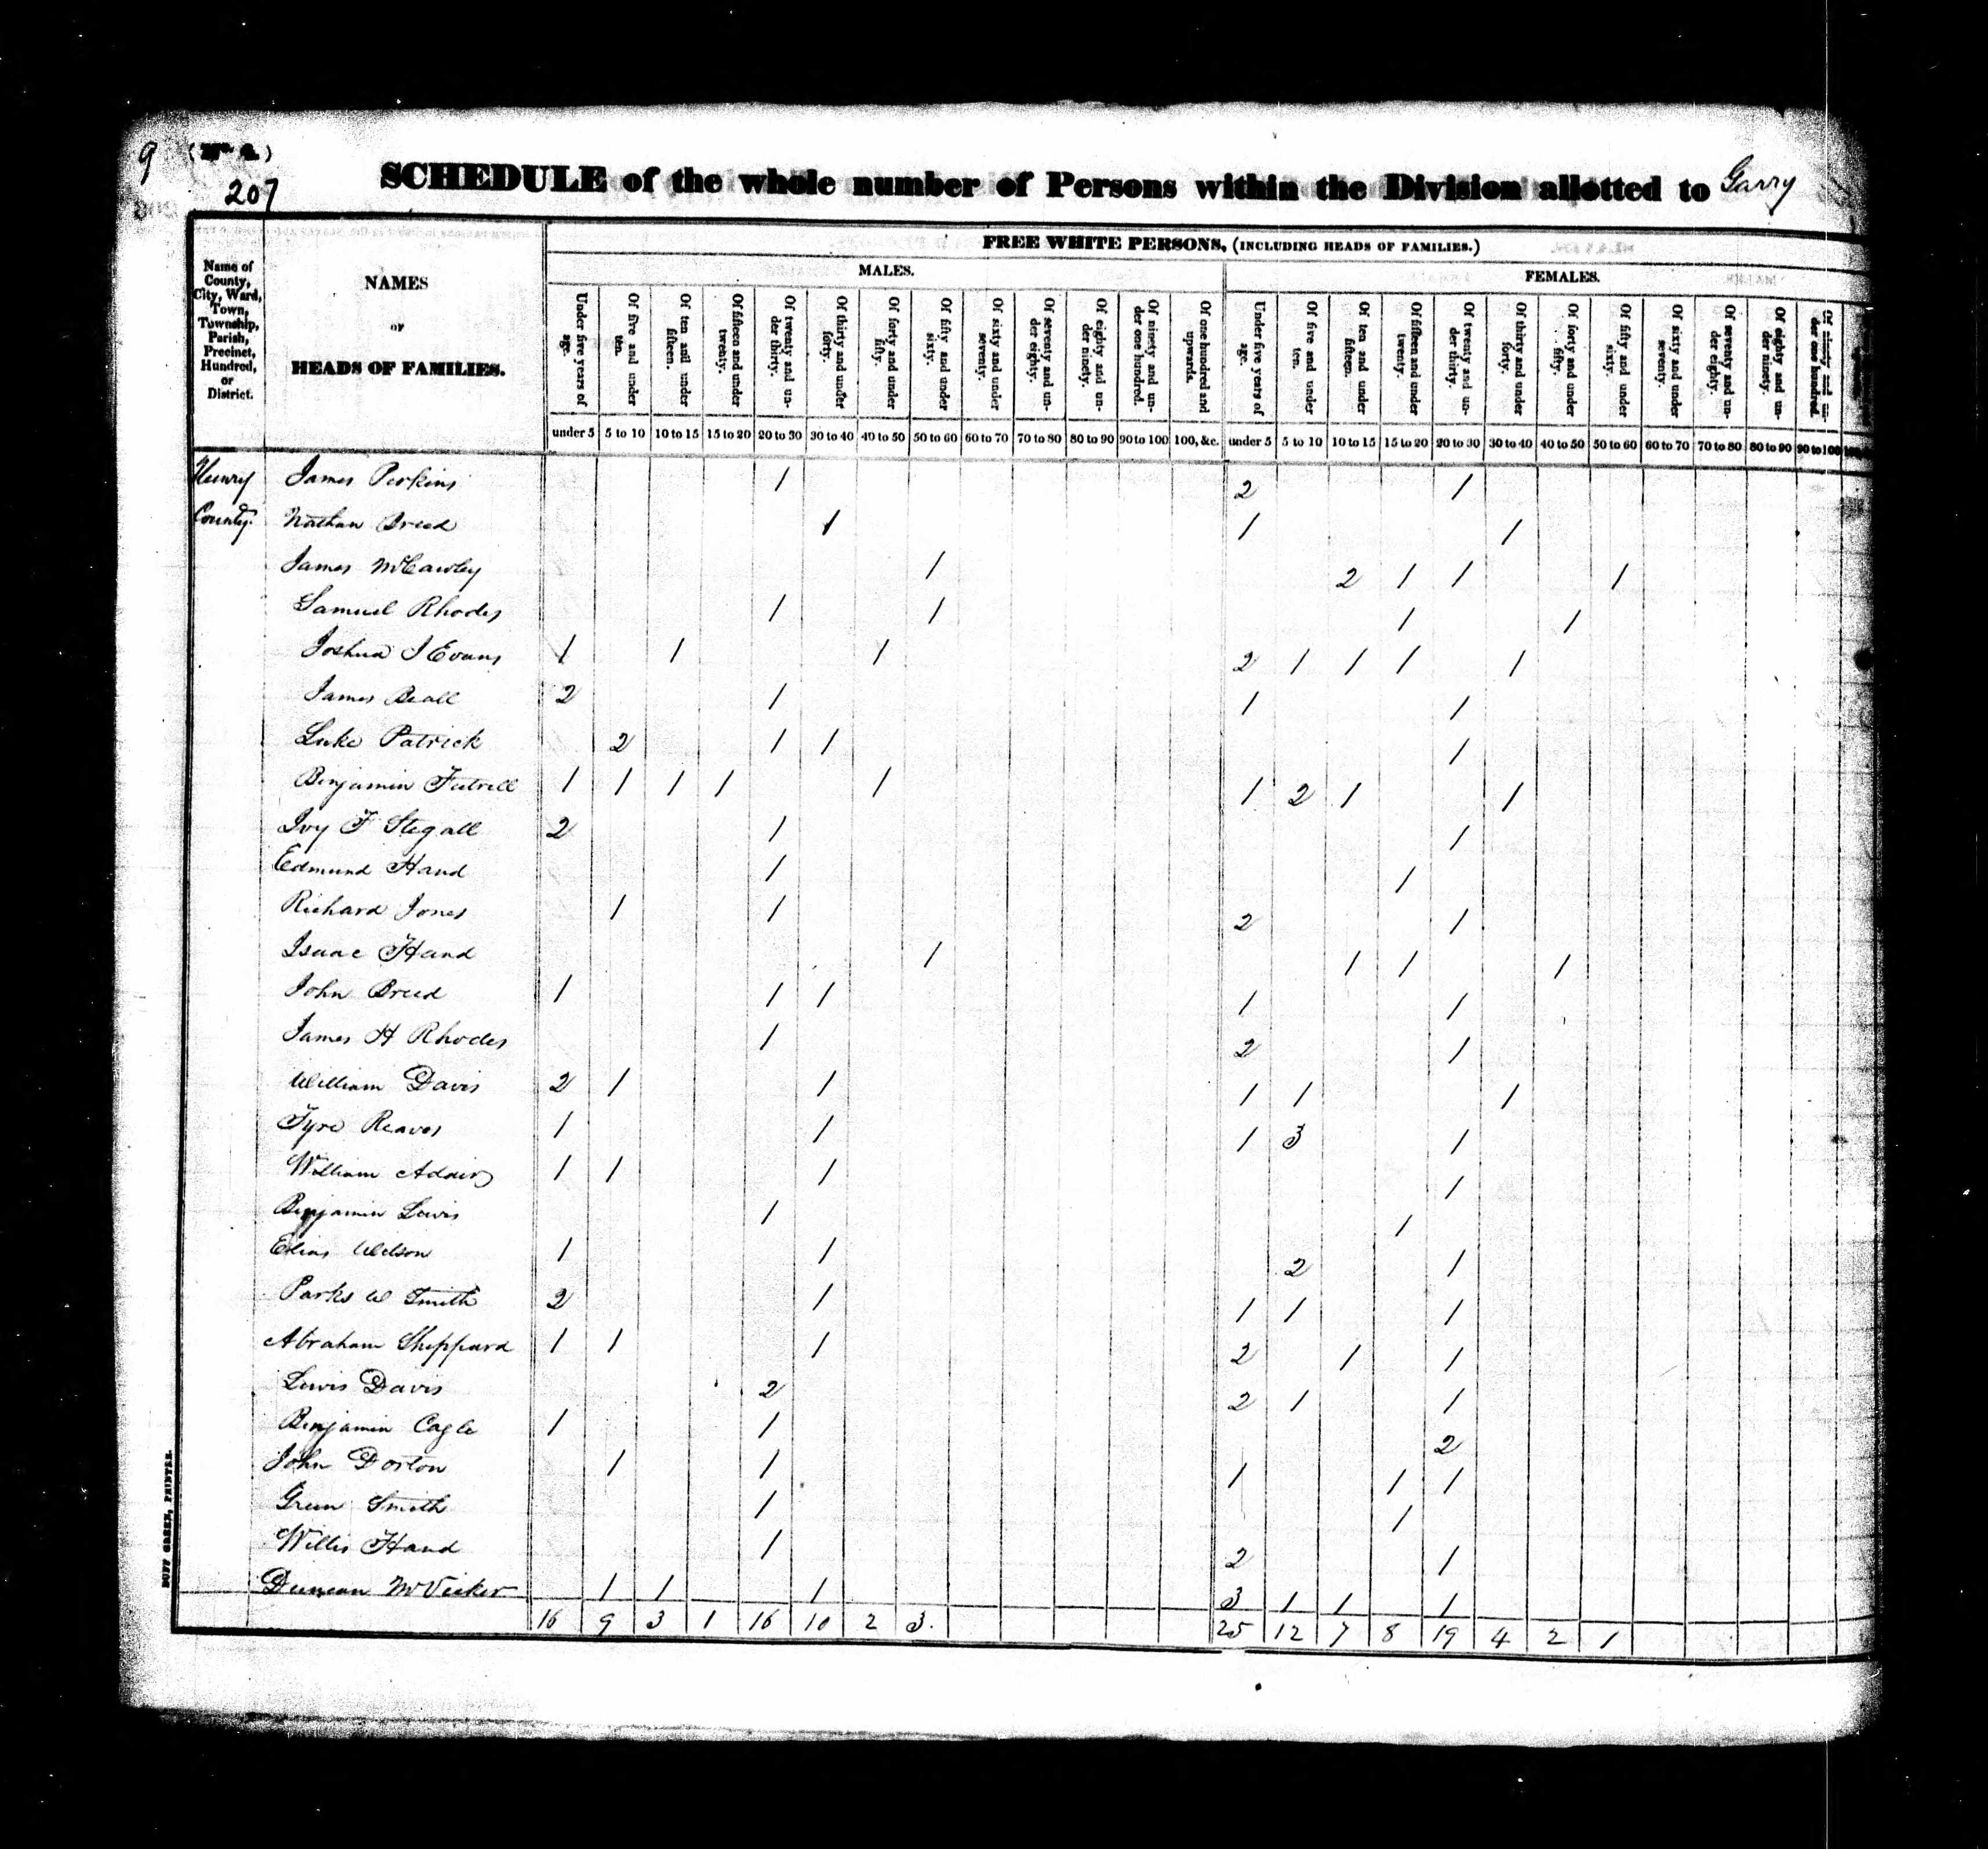 9 (No. 2.)
207
SCHEDULE of the whole number of Persons within the Division allotted to Garry
FREE WHITE PERSONS, (INCLUDING HEADS OF FAMILIES.)
MALES. FEMALES.
Name of County, City, Ward, Town, Township, Parish, Precinct, Hundred, or District.
NAMES
OF
HEADS OF FAMILIES.
Under five years of age. Of five and under ten. Of ten and under fifteen. Of fifteen and under twenty. Of twenty and under thirty. Of thirty and under forty. Of forty and under fifty. Of fifty and under sixty. Of sixty and under seventy. Of seventy and under eighty. Of eighty and under ninety. Of ninety and under one hundred. Of one hundred and upwards. Under five years of age. Of five and under ten. Of ten and under fifteen. Of fifteen and under twenty. Of twenty and under thirty. Of thirty and under forty. Of forty and under fifty. Of fifty and under sixty. Of sixty and under seventy. Of seventy and under eighty. Of eighty and under ninety. Of ninety and under one hundred.
under 5 5 to 10 10 to 15 15 to 20 20 to 30 30 to 40 40 to 50 50 to 60 60 to 70 70 to 80 80 to 90 90 to 100 100, &c. under 5 5 to 10 10 to 15 15 to 20 20 to 30 30 to 40 40 to 50 50 to 60 60 to 70 70 to 80 80 to 90 90 to 100
Henry James Perkins 1 2 1
County. Nathan Breed 1 1 1
James McCawley 1 2 1 1 1
Samuel Rhodes 1 1 1 1
Joshua J Evans 1 1 1 2 1 1 1 1
James Beall 2 1 1 1
Luke Patrick 2 1 1 1
Benjamin Futrell 1 1 1 1 1 1 2 1 1
Ivy F Stegall 2 1 1
Edmund Hand 1 1
Richard Jones 1 1 2 1
Isaac Hand 1 1 1 1
John Breed 1 1 1 1 1
James H Rhodes 1 2 1
William Davis 2 1 1 1 1 1
Tyre Reaves 1 1 1 3 1
William Adair 1 1 1 1
Benjamin Lewis 1 1
Elias Wilson 1 1 2 1
Parks W Smith 2 1 1 1 1
Abraham Sheppard 1 1 1 2 1 1
Lewis Davis 2 2 1 1
Benjamin Cagle 1 1 2
John Dorton 1 1 1 1 1
Green Smith 1 1
Willis Hand 1 2 1
Duncan McVicker 1 1 1 3 1 1 1
16 9 3 1 16 10 2 3. 25 12 7 8 19 4 2 1
DUFF GREEN, PRINTER.